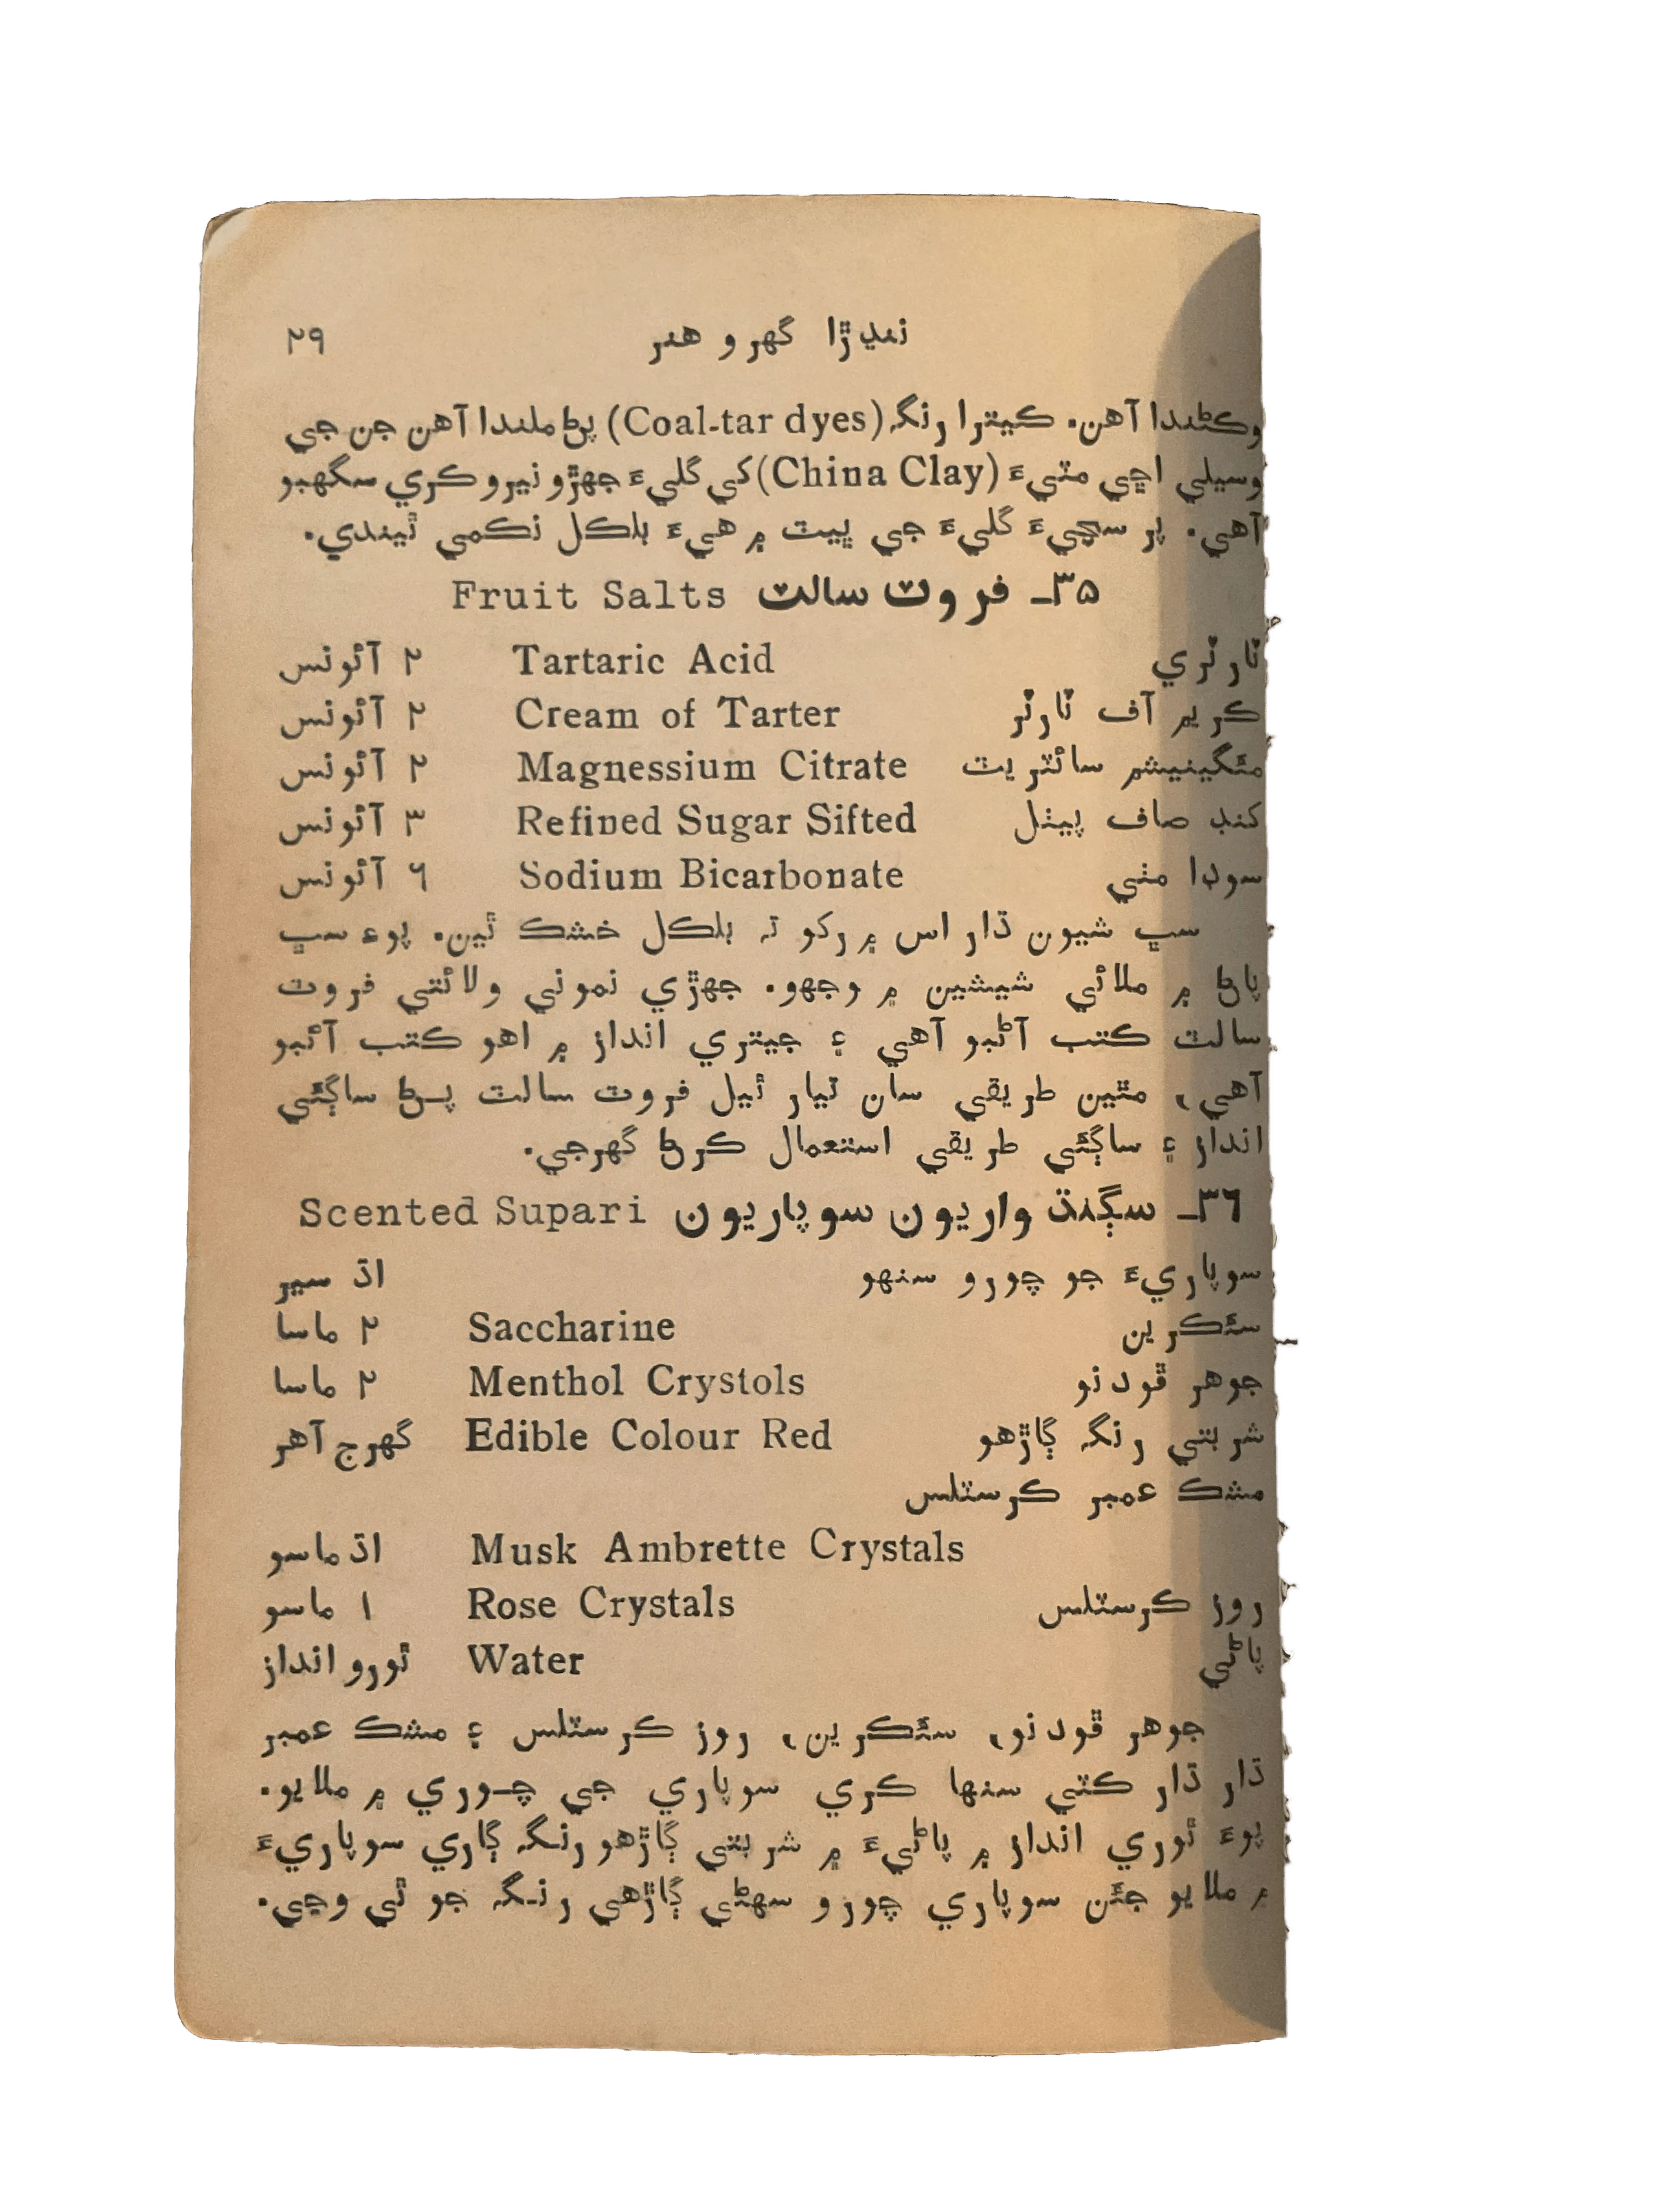 ننڍڙا گهرو هنر ٢٩
وڪڻندا آهن. ڪيترا رنگہ (Coal-tar dyes) پڻ ملندا آهن جن جي
وسيلي اڇي مٽيءَ (China Clay) کي گليءَ جهڙو نيرو ڪري سگهبو
آهي. پر سچيءَ گليءَ جي ڀيٽ ۾ هيءَ بلڪل نڪمي ٿيندي.
٣٥ـ فروٽ سالٽ Fruit Salts
ٽارٽري Tartaric Acid ٢ آئونس
ڪريم آف ٽارٽر Cream of Tarter ٢ آئونس
مئگنيشم سائٽريٽ Magnessium Citrate ٢ آئونس
کنڊ صاف پيٺل Refined Sugar Sifted ٣ آئونس
سوڊا مٺي Sodium Bicarbonate ٦ آئونس
سڀ شيون ڌار اس ۾ رکو تہ بلڪل خشڪ ٿين. پوءِ سڀ
پاڻ ۾ ملائي شيشين ۾ وجهو. جهڙي نموني ولائتي فروٽ
سالٽ ڪتب آڻبو آهي ۽ جيتري انداز ۾ اهو ڪتب آڻبو
آهي، مٿين طريقي سان تيار ٿيل فروٽ سالٽ پـڻ ساڳئي
انداز ۽ ساڳئي طريقي استعمال ڪرڻ گهرجي.
٣٦ـ سڳنڌ واريون سوپاريون Scented Supari
سوپاريءَ جو چورو سنهو اڌ سير
سئڪرين Saccharine ٢ ماسا
جوهر ڦودنو Menthol Crystols ٢ ماسا
شربتي رنگہ ڳاڙهو Edible Colour Red گهرج آهر
مشڪ عمبر ڪرسٽلس
Musk Ambrette Crystals اڌ ماسو
روز ڪرسٽلس Rose Crystals ١ ماسو
پاڻي Water ٿورو انداز
جوهر ڦودنو، سئڪرين، روز ڪرسٽلس ۽ مشڪ عمبر
ڌار ڌار ڪٽي سنها ڪري سوپاري جي چـوري ۾ ملايو.
پوءَ ٿوري انداز ۾ پاڻيءَ ۾ شربتي ڳاڙهو رنگہ ڳاري سوپاريءَ
۾ ملايو جئن سوپاري چورو سهڻي ڳاڙهي رنـگہ جو ٿي وڃي.